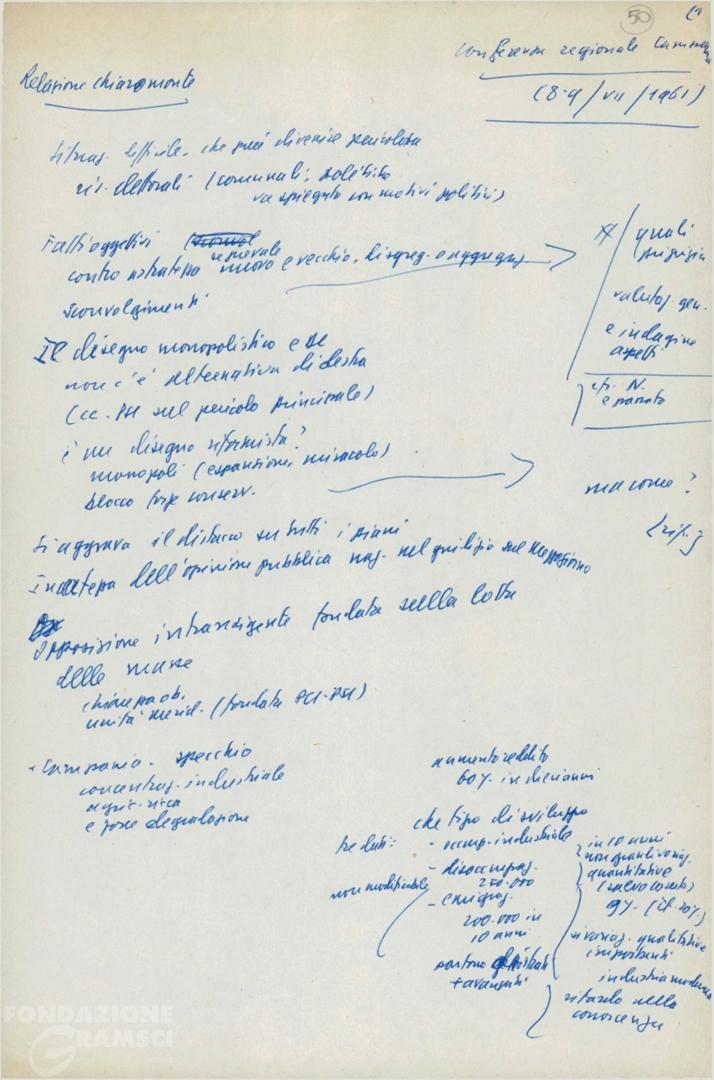 50
Conferenza regionale Campania
(8-9/VII/1961)
Relazione Chiaromonte
situaz. difficile, che può divenire pericolosa
ris. elettorali (comunali; solidità
va spiegato con motivi politici)
Fatti oggettivi
contro astrattezza nuovo e vecchio, disgreg. e aggregaz.
sconvolgimenti
quali
valutaz. gen.
e indagine
aspetti
cfr. N.
Il disegno monopolistico e DC
non c'è alternativa di destra
(cc. PSI sul pericolo principale)
è un disegno riformista?
monopoli (espansione, miracolo)
blocco forze conserv.
ma come?
si aggrava il distacco su tutti i piani
Incertezza dell'opinione pubblica naz. nel giudizio sul Mezzogiorno
Opposizione intransigente fondata sulla lotta
delle masse
chiarezza ob.
unità merid. (fondata PCI-PSI)
- Campania - specchio
concentraz. industriale
agric. ricca
e forse degradazione
aumento reddito
60% in dieci anni
che tipo di sviluppo
tre dati:
- occup. industriale
- disoccupaz.
250.000
- emigraz.
200.000 in
10 anni
non modificabile
partono
+ avanzati
in 10 anni
non grandi variaz.
quantitative
9% (it. 20%)
si variaz. qualitative
importanti
industria moderna
ritardo nella
conoscenza
FONDAZIONE
GRAMSCI